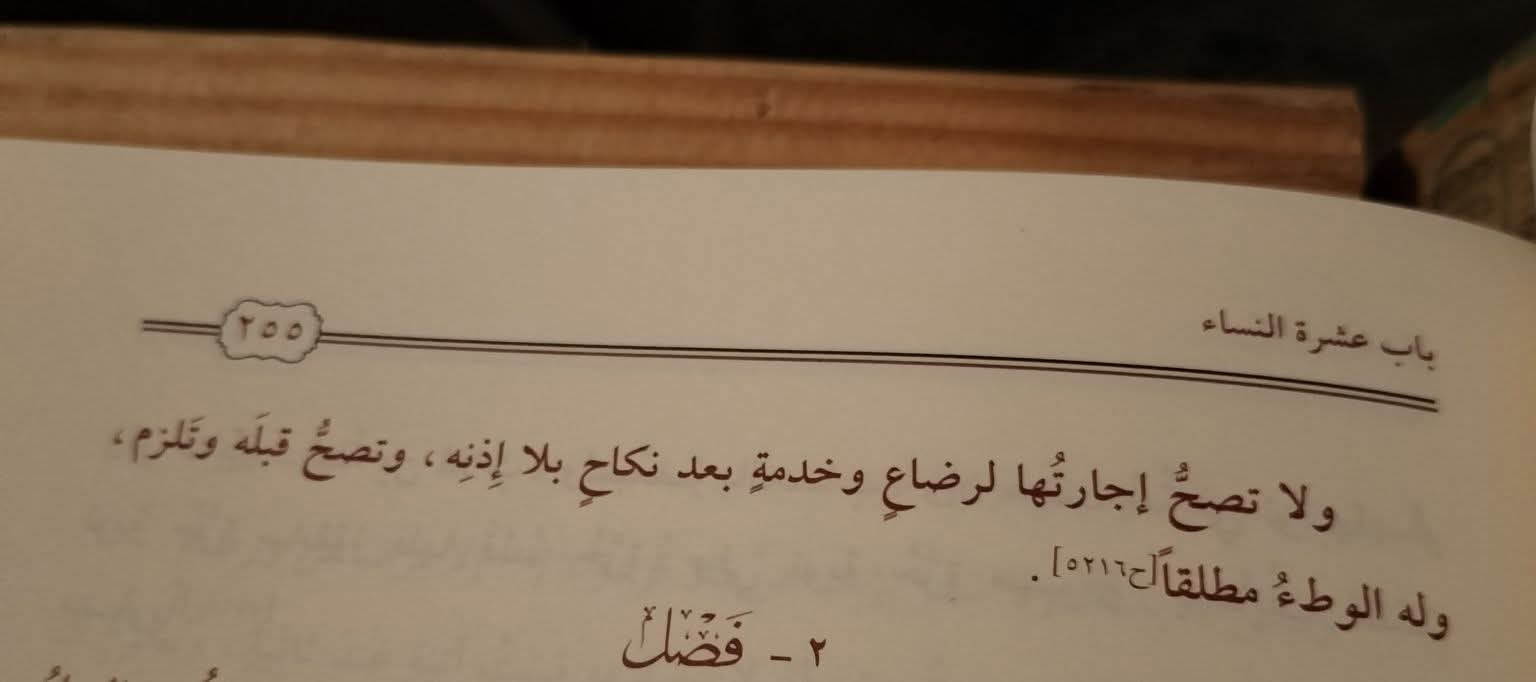 باب عشرة النساء
٢٥٥
ولا تصحُّ إجارتُها لرضاعٍ وخدمةٍ بعد نكاحٍ بلا إِذنِه، وتصحُّ قبلَه وتَلزم،
وله الوطءُ مطلقاً[ح٥٢١٦].
٢ - فَصْلٌ